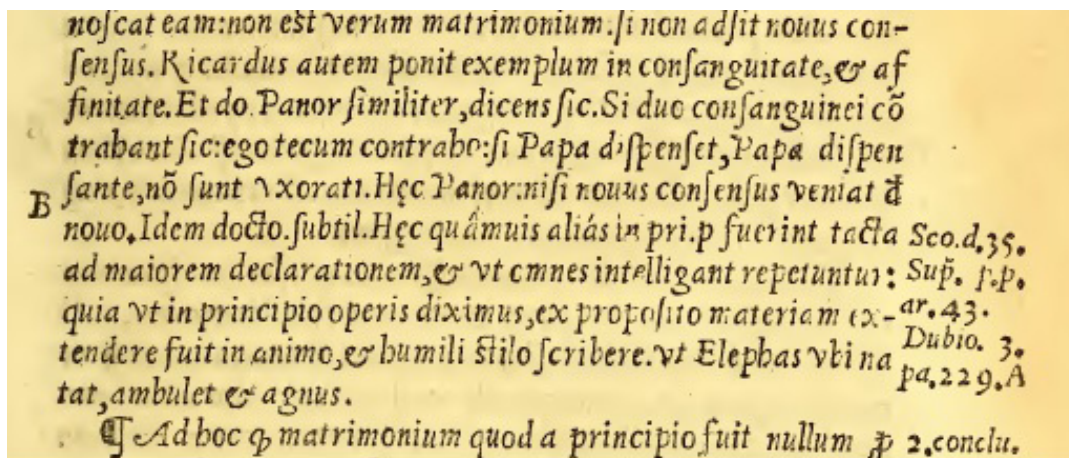 noſcat eam:non est verum matrimonium.ſi non adſit nouus con-
ſenſus. Ricardus autem ponit exemplum in conſanguitate,& af
finitate. Et do. Panor ſimiliter,dicens ſic. Si duo conſanguinei cō
trahant ſic:ego tecum contrabo:ſi Papa diſpenſet,Papa diſpen
B ſante,nō ſunt vxorati. Hęc Panor:niſi nouus conſenſus veniat đ
nouo. Idem docto.ſubtil. Hęc quámuis aliás in pri.p fuerint tacta Sco.d.35.
ad maiorem declarationem,& vt omnes intelligant repetuntur: Sup̄. p.p.
quia vt in principio operis diximus,ex propoſito materiam ex- ar.43.
tendere fuit in animo,& humili stilo ſcribere.vt Elephas vbi na Dubio. 3.
tat,ambulet & agnus. pa.229.A
¶ Ad hoc ꝙ matrimonium quod a principio fuit nullum ꝓ 2.conclu.